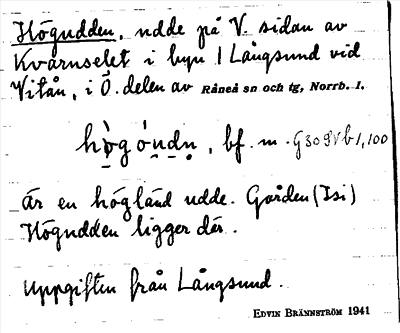 Högudden, udde på V. sidan av
Kvarnselet i byn Långsund vid
Vitån, i Ö. delen av Råneå sn och tg, Norrb. l.
hò̤g ó̤ṇḍṇ, bf. m. G309Vb1,100
Är en högländ udde. Gården (Isi)
Högudden ligger där.
Uppgiften från Långsund.
EDVIN BRÄNNSTRÖM 1941